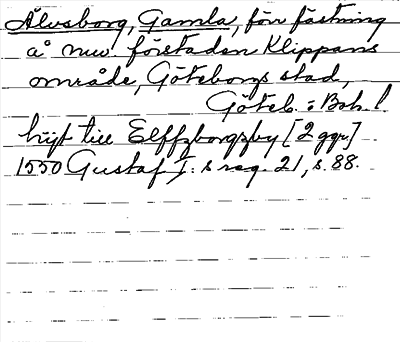 Älvsborg, Gamla, förr fästning
å nuv. förstaden Klippans
område, Göteborgs stad,
Göteb. o. Boh. l.
hijt till Elffzborgzby [2 ggr]
1550 Gustaf I:s reg. 21, s. 88.